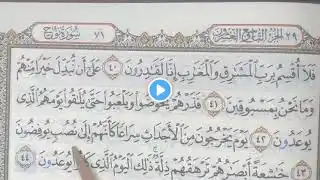 ٢٩ الجزء التاسع والعشرون ٧١ سورة نوح
فَلَآ أُقْسِمُ بِرَبِّ ٱلْمَشَٰرِقِ وَٱلْمَغَٰرِبِ إِنَّا لَقَٰدِرُونَ ٤٠ عَلَىٰٓ أَن نُّبَدِّلَ خَيْرًا مِّنْهُمْ
وَمَا نَحْنُ بِمَسْبُوقِينَ ٤١ فَذَرْهُمْ يَخُوضُوا۟ وَيَلْعَبُوا۟ حَتَّىٰ يُلَٰقُوا۟ يَوْمَهُمُ ٱلَّذِى
يُوعَدُونَ ٤٢ يَوْمَ يَخْرُجُونَ مِنَ ٱلْأَجْدَاثِ سِرَاعًا كَأَنَّهُمْ إِلَىٰ نُصُبٍ يُوفِضُونَ
٤٣ خَٰشِعَةً أَبْصَٰرُهُمْ تَرْهَقُهُمْ ذِلَّةٌ ذَٰلِكَ ٱلْيَوْمُ ٱلَّذِى كَانُوا۟ يُوعَدُونَ ٤٤